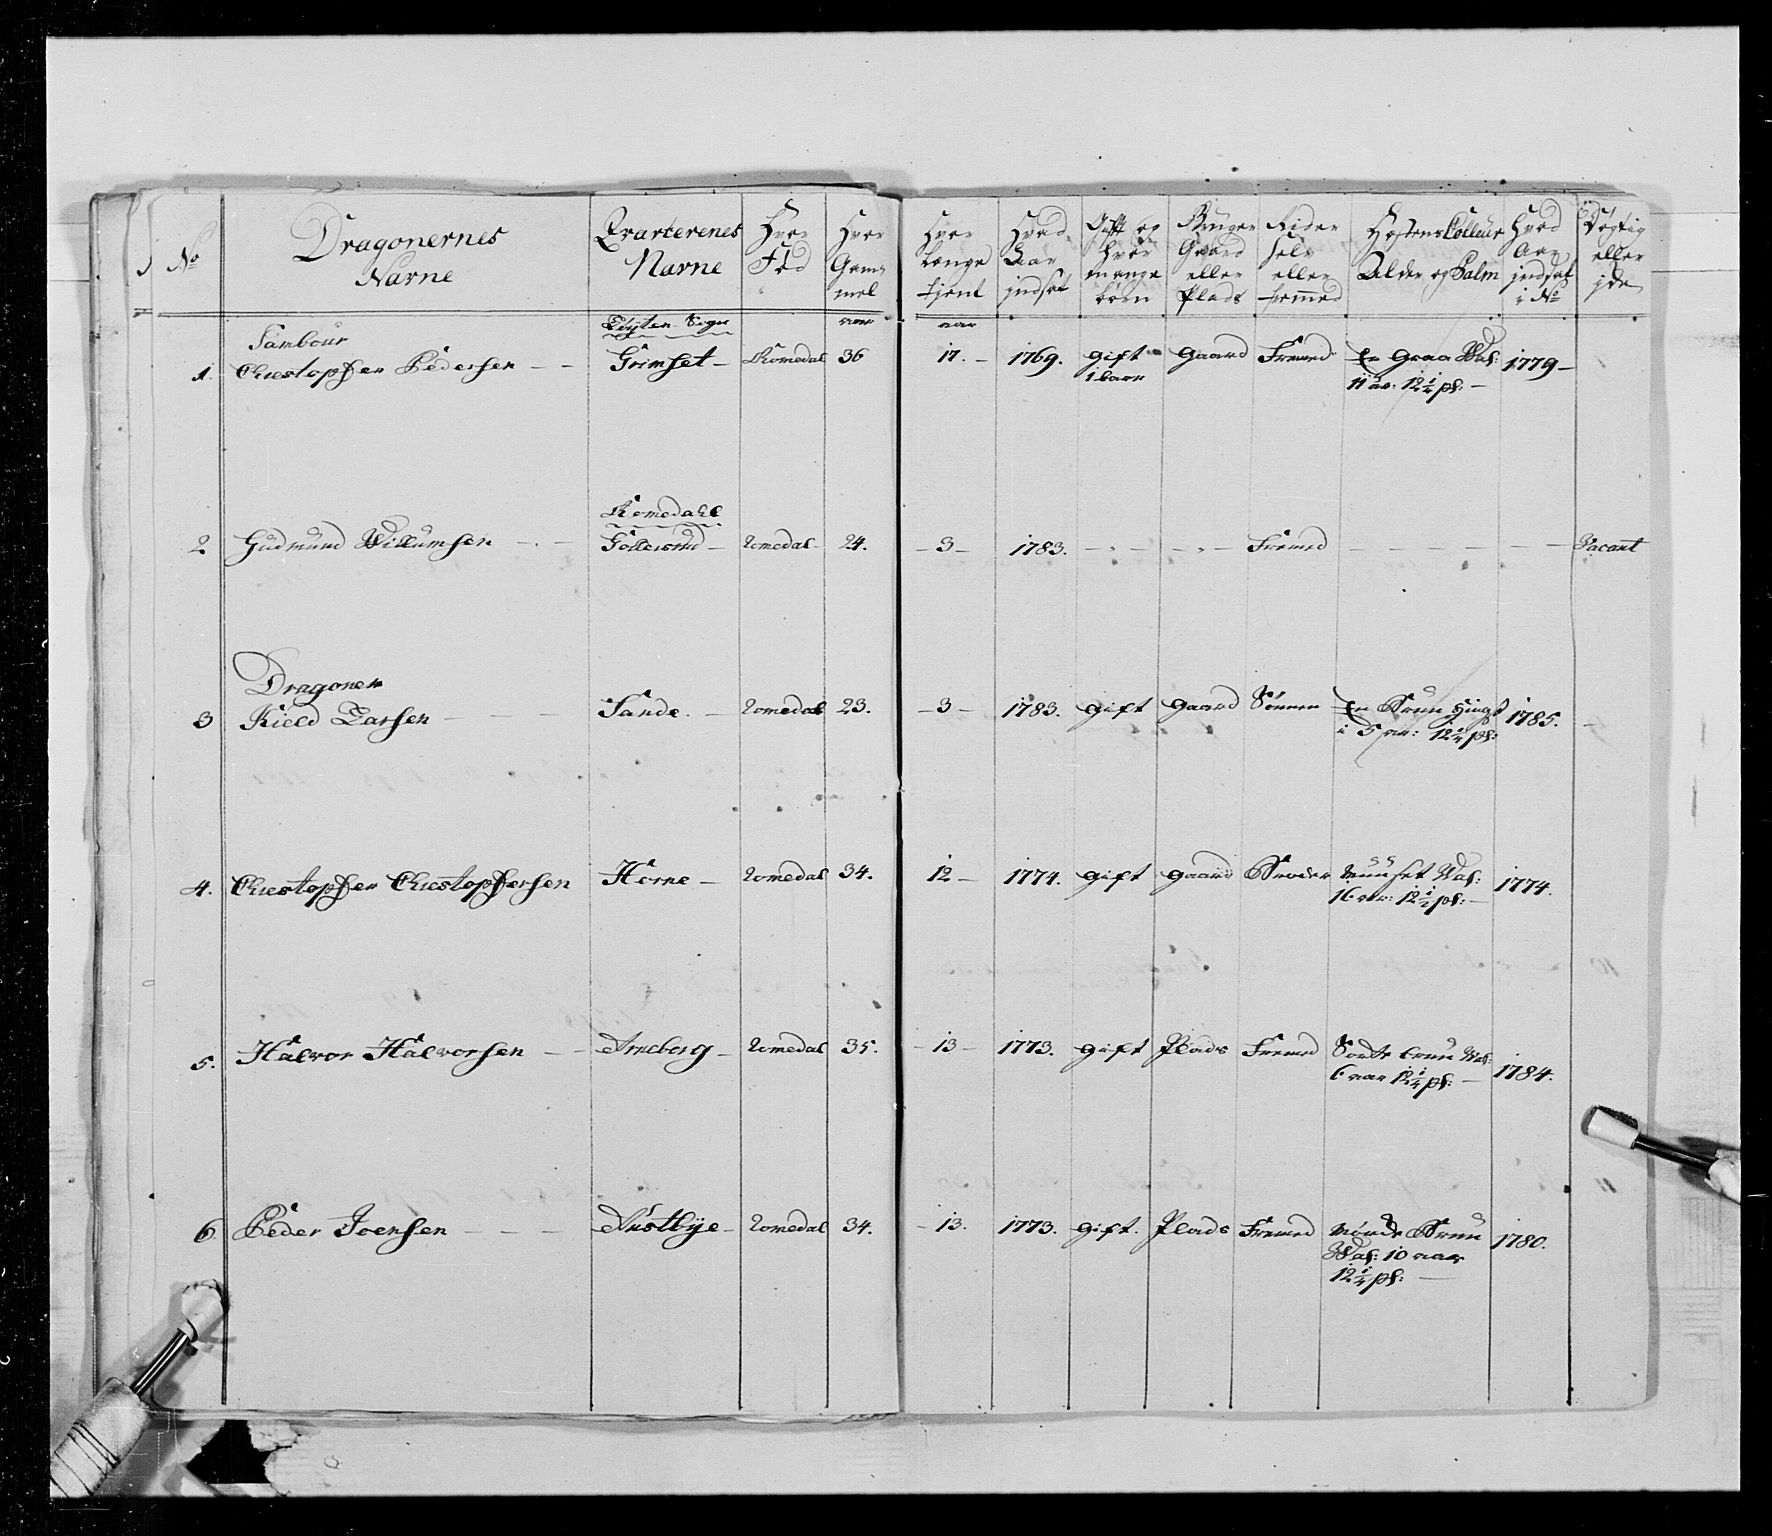 No
Dragonernes
Navne
Qvarterenes
Navne
Hvor
Fød
Hvor
Gam-
mel
Hvor
længe
tient
Hvad
Aar
indsat
Gift og
hvor
mange
børn
Bruger
Gaard
eller
Plads
Rider
selv
eller
fremmed
Hæstens Colleur
Alder og Palm
Hvad
Aar
indsat
i No
Døgtig
eller
Tambour
Sogn
aar
aar
1. Christopher Pedersen - - Grimset - Romedal 36 17. - 1769. gift Gaard Fremd En Graa Val: 1779 -
1 barn
11 aar: 12 1/4 pl: -
Romedahl
2 Gudmund Willumsen - - Gollerud - Romedal - 24. - 3 - 1783. - - - - - - Fremd - - - - - - Vacant
Dragoner
3 Kield Larsen - - - Sande. - Romedal 23. - 3 - 1783. gift gaard Sønnen En Brun Hingst 1785.
i 5 aar: 12 1/4 pl:
4. Christopher Christophersen Horne - Romedal 34. 12 - 1774. gift gaard Broder Muuset Val: 1774.
16 aar: 12 1/2 pl: -
5. Halvor Halvorsen - - Arneberg - Romedal 35. - 13 - 1773. gift Plads Fremd Sorte brun Val: 1784.
6 aar 12 1/4 pl: -
6 Peder Joensen - - - Austbye - Romedal 34. - 13. 1773. gift. Plads Fremd Mørk Brun 1780.
Val: 10 aar
12 1/4 pl: -